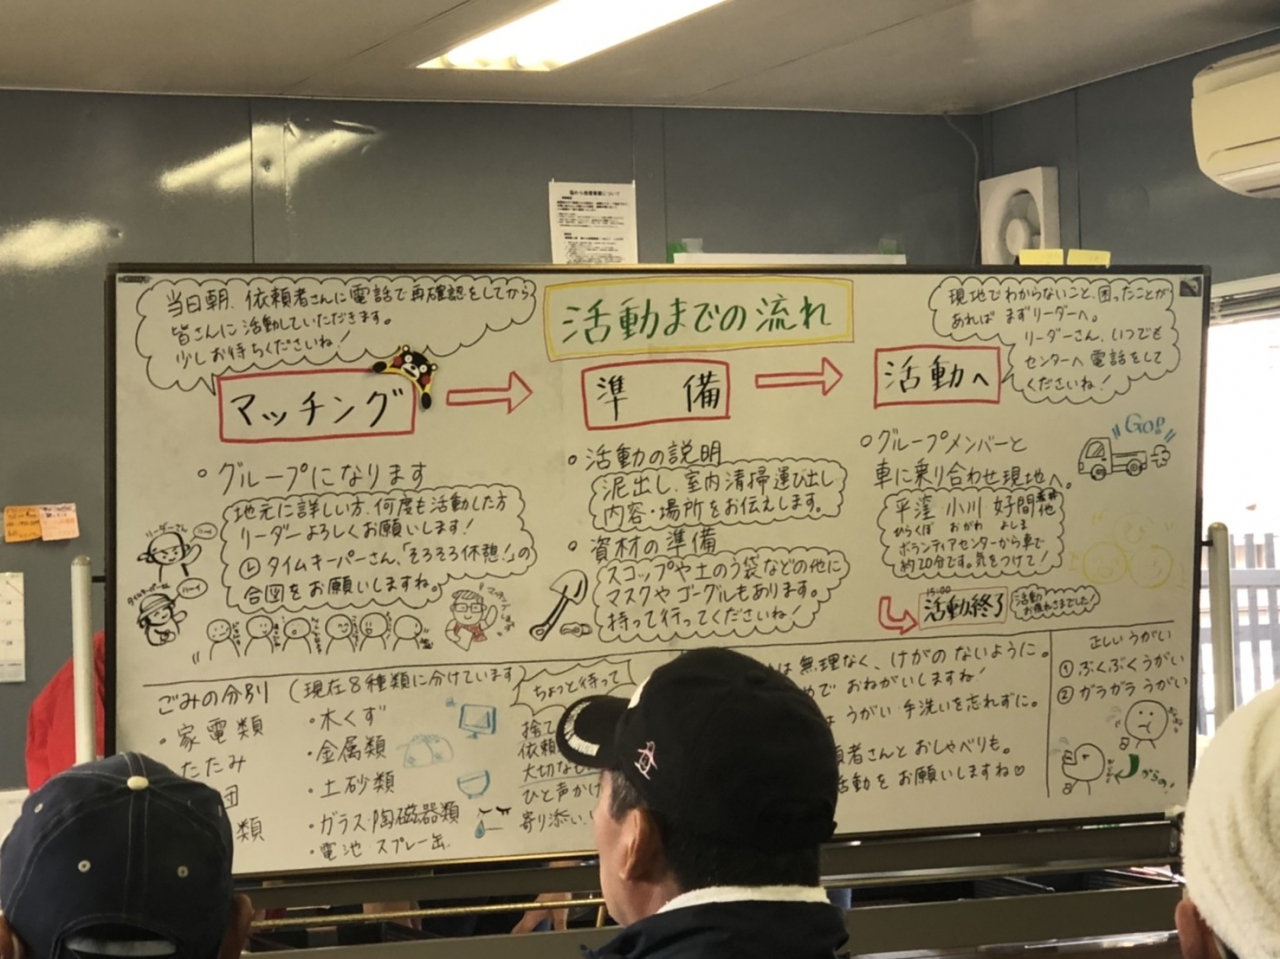 活動までの流れ
当日朝、依頼者さんに電話で再確認をしてから
皆さんに活動していただきます。
少しお待ちくださいね!
マッチング
準 備
活動へ
現地でわからないこと、困ったことが
あれば まずリーダーへ。
リーダーさん、いつでも
センターへ電話をして
くださいね!
Go!!
。グループになります
地元に詳しい方、何度も活動した方
リーダーよろしくお願いします!
タイムキーパーさん、「そろそろ休憩!」の
合図をお願いしますね。
リーダーさん
タイムキーパー
。活動の説明
泥出し、室内清掃、運び出し
内容・場所をお伝えします。
。資材の準備
スコップや土のう袋などの他に
マスクやゴーグルもあります。
持って行ってくださいね!
。グループメンバーと
車に乗り合わせ現地へ。
平窪 小川 好間 他
ひらくぼ おがわ よしま
ボランティアセンターから車で
約20分です。気をつけて!
15:00
活動終了
活動
お疲れさまでした!
ごみの分別 (現在8種類に分けています
・家電類
たたみ
団
類
・木くず
・金属類
・土砂類
・ガラス・陶磁器類
・電池 スプレー缶
ちょっと待って
捨て
依頼
大切なも
ひと声かけ
寄り添い
は無理なく、けがのないように。
で おねがいしますね!
は うがい・手洗いを忘れずに。
者さんとおしゃべりも。
活動をお願いしますね♡
正しいうがい
① ぶくぶくうがい
② ガラガラうがい